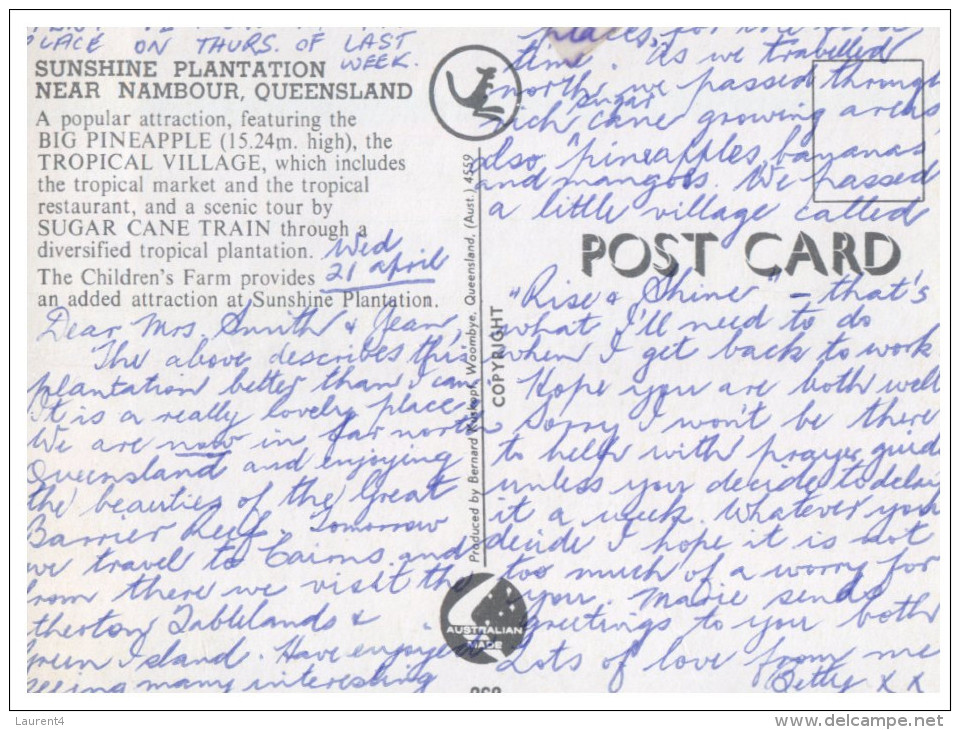 PLACE ON THURS. OF LAST
WEEK.
SUNSHINE PLANTATION
NEAR NAMBOUR, QUEENSLAND
A popular attraction, featuring the
BIG PINEAPPLE (15.24m. high), the
TROPICAL VILLAGE, which includes
the tropical market and the tropical
restaurant, and a scenic tour by
SUGAR CANE TRAIN through a
diversified tropical plantation.
The Children's Farm provides
an added attraction at Sunshine Plantation.
Wed
21 April
Dear Mrs. Smith & Jean,
The above describes this
plantation better than I can.
It is a really lovely place.
We are now in far north
Queensland and enjoying
the beauties of the Great
Barrier Reef. Tomorrow
we travel to Cairns and
from there we visit the
therton Tablelands &
Green Island. Have enjoyed
seeing many interesting
places, for
time. As we travelled
north we passed through
rich sugar cane growing areas,
also, pineapples, bananas
and mangoes. We passed
a little village called
"Rise & Shine" - that's
what I'll need to do
when I get back to work.
Hope you are both well.
Sorry I won't be there
to help with prayer guide
unless you decide to delay
it a week. Whatever you
decide I hope it is not
too much of a worry for
you. Marie sends
greetings to you both
Lots of love from me
Betty x x
POST CARD
Produced by Bernard Woombye, Queensland, (Aust.) 4559
COPYRIGHT
AUSTRALIAN
MADE
Laurent4
www.delcampe.net